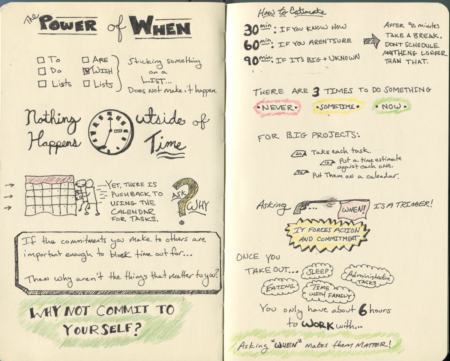 The POWER of WHEN
To Are
Do Wish
Lists Lists
Sticking something
on a
LIST...
Does not make it happen
Nothing
Happens
Outside of
Time
YET, THERE IS
PUSHBACK TO
USING THE
CALENDAR
FOR TASKS.
ASK
WHY
?
If the commitments you make to others are
important enough to block time out for...
Then why aren't the things that matter to you?
WHY NOT COMMIT TO
YOURSELF?
How to Estimate
30 min: IF YOU KNOW HOW
60 min: IF YOU AREN'T SURE
90 min: IF IT'S BIG + UKNOWN
AFTER 90 minutes
TAKE A BREAK.
DON'T SCHEDULE
ANYTHING LONGER
THAN THAT.
THERE ARE 3 TIMES TO DO SOMETHING
NEVER SOMETIME NOW
FOR BIG PROJECTS:
Take each task.
Put a time estimate
against each one.
Put them on a calendar.
Asking WHEN? IS A TRIGGER!
IT FORCES ACTION
AND COMMITMENT
ONCE YOU
TAKE OUT... SLEEP Administrative
TASKS
EATING TIME
WITH FAMILY
You only have about 6 hours
to WORK with...
Asking "WHEN" makes them MATTER!